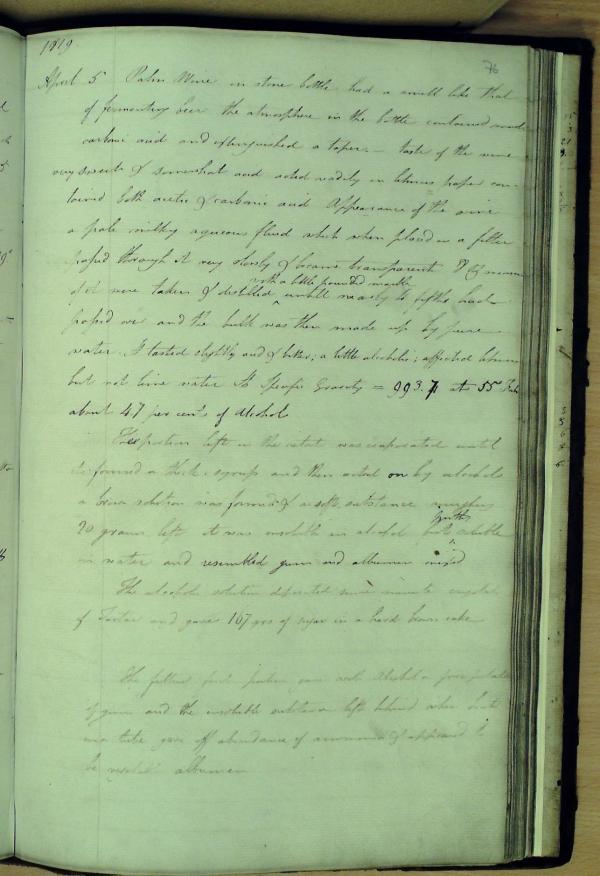 1819
76
April 5 Palm Wine in stone bottle had a smell like that
of fermenting beer the atmosphere in the bottle contained much
carbonic acid and extinguished a taper. — taste of the wine
very sweet & somewhat acid acted readily on litmus paper con-
tained both acetic & carbonic acid Appearance of the wine
a pale milky aqueous fluid which when placed on a filter
passed through it very slowly & became transparent
of it were taken & distilled with a little pounded marble until nearly 4 fifths had
passed over and the bulk was then made up by pure
water. It tasted slightly acid & bitter; a little alcoholic; affected litmus
but not lime water Its Specific Gravity = 993.7 at 55
about 4.7 per cents of Alcohol
The portion left in the retort was evaporated until
it formed a thick syrup and then acted on by alcohol
a brown solution was formed & a soft substance weighing
20 grains left it was insoluble in alcohol but soluble
in water and resembled gum and albumen mixed
The alcoholic solution deposited some minute crystals
of Tartar and gave 167 grs of sugar in a hard brown cake
The filtered portion gave with Alcohol a precipitate
of gum and the insoluble substance left behind when heated
in a tube gave off abundance of ammonia & appeared to
be albumen